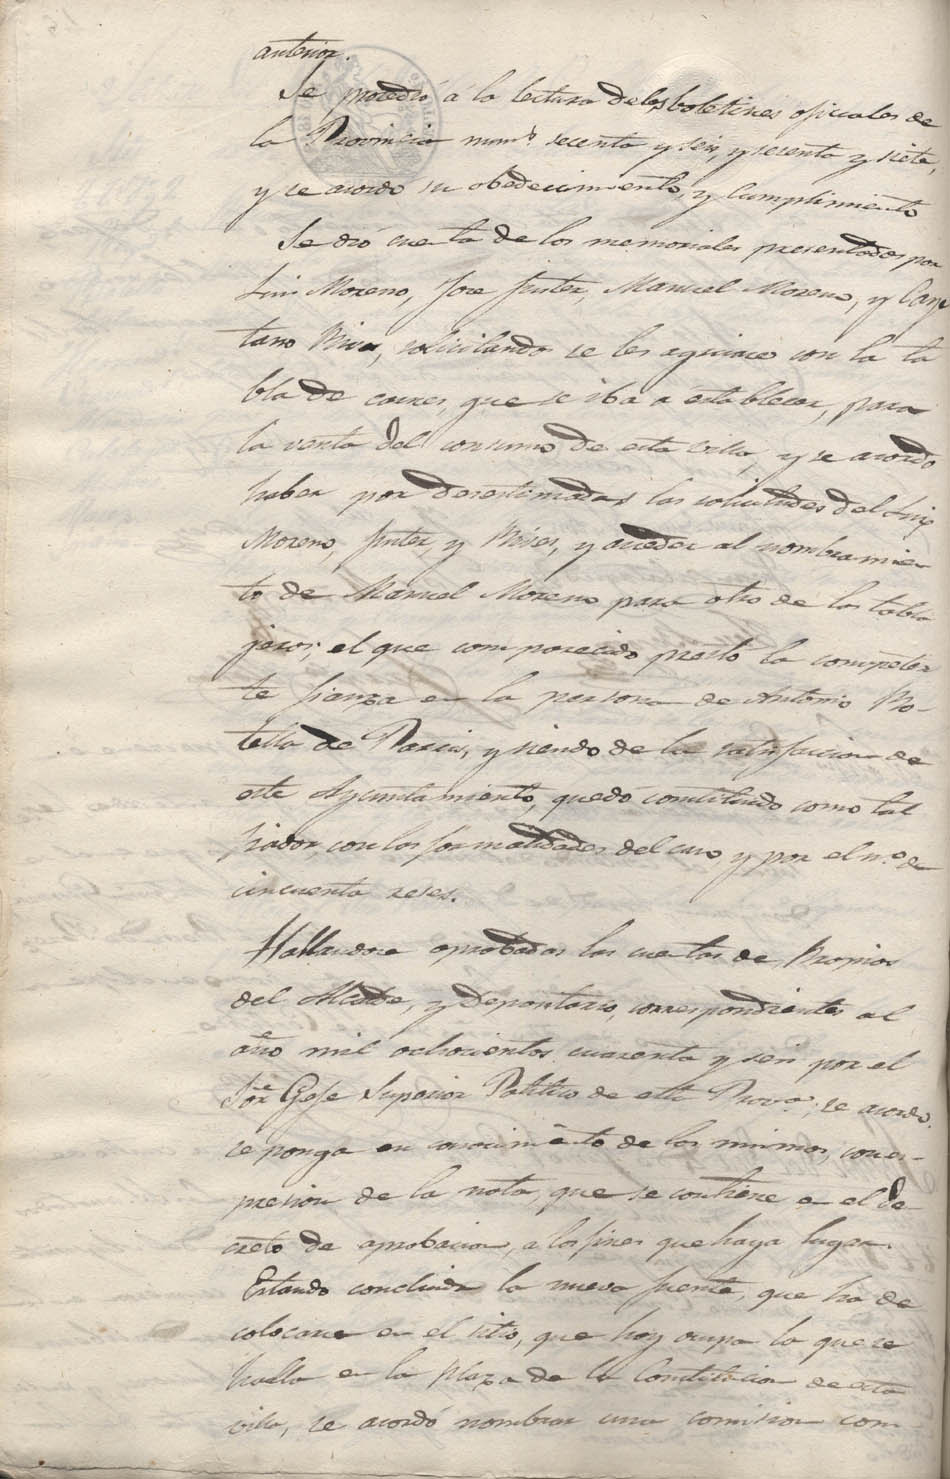 anterior.
Se procedió á la lectura de los boletines oficiales de
la Provincia num.s secenta y seis, y secenta y siete,
y se acordó su obedecimiento, y cumplimiento
Se dió cuenta de los memoriales presentados por
Luis Moreno, Jose Juster, Manuel Moreno, y Caye
tano Rives, solicitando se les agraciace con la ta
bla de carnes, que se iba a establecer, para
la venta del consumo de esta villa, y se acordó
haber por desestimadas las solicitudes del Luis
Moreno, Juster, y Rives, y acceder al nombramien
to de Manuel Moreno para otro de los tabla
jeros; el que comparecido prestó la competen
te fianza en la persona de Antonio Bo-
tella de Pascu, y siendo de la satisfaccion de
este Ayuntamiento, quedo constituido como tal
fiador, con las formalidades del caso, y por el n.o de
cincuenta reses.
Hallandose aprobadas las cuentas de Propios
del Alcalde, y Depositario, correspondientes al
año mil ochocientos cuarenta y seis por el
Sor. Gefe Superior Politico de esta Prov.a; se acordó
se ponga en conocimiento de los mismos, con es-
presion de la nota, que se contiene en el de-
creto de aprobacion, a los fines que haya lugar.
Estando concluida la nueva fuente, que ha de
colocarse en el sitio, que hoy ocupa la que se
halla en la plaza de la Constitucion de esta
villa, se acordó nombrar una comision com